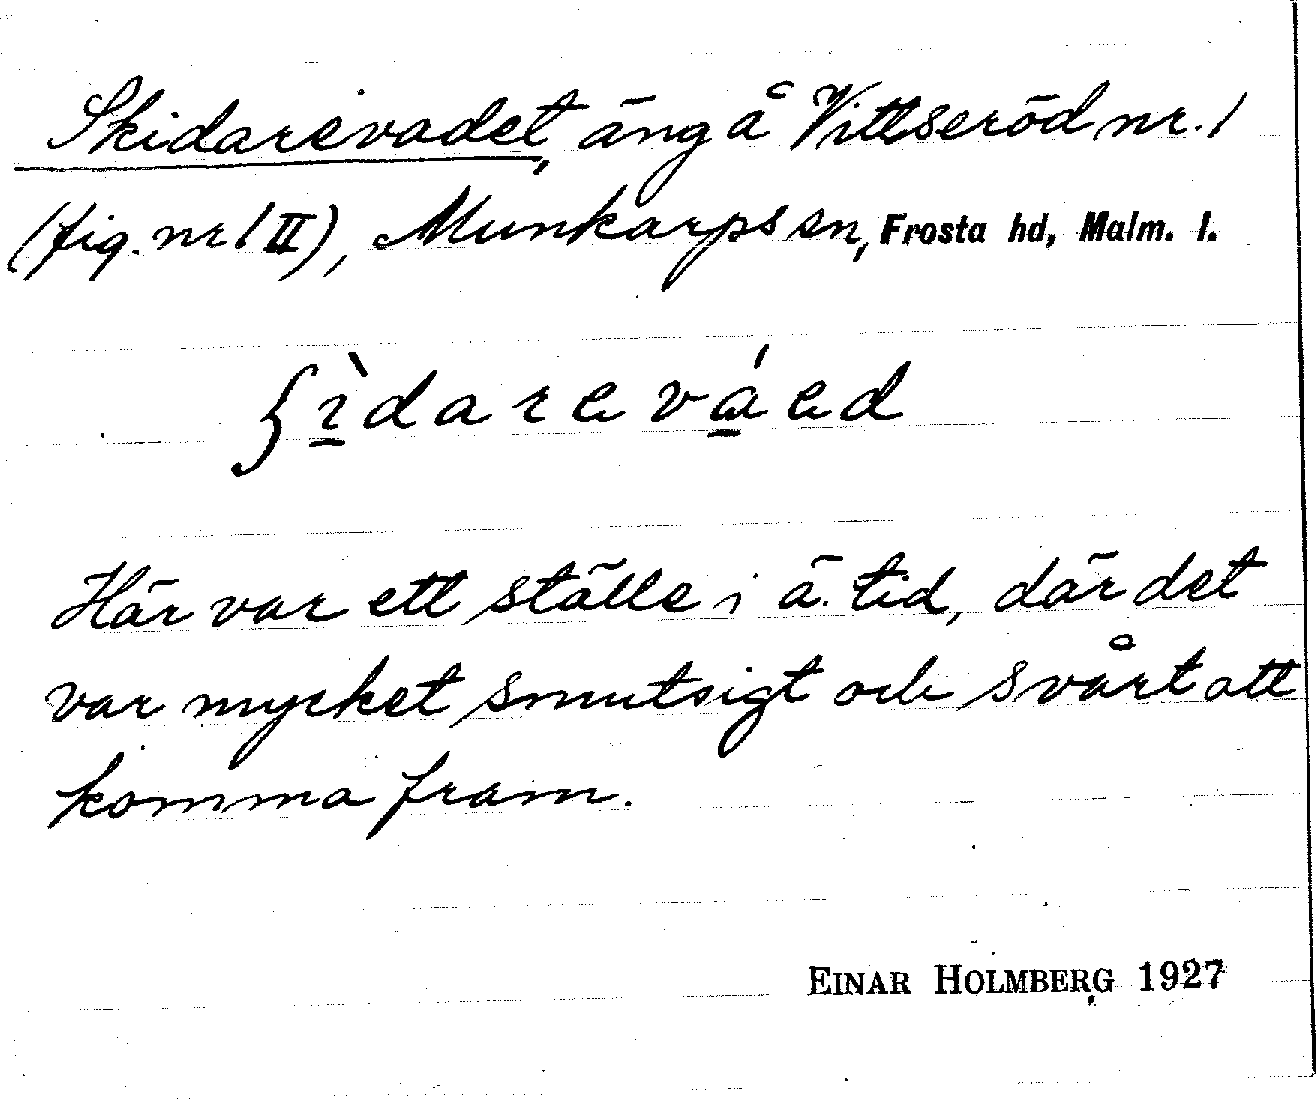 Skidarevadet, äng å Vittseröd nr. 1
(fig. nr 1 II), Munkarps sn, Frosta hd, Malm. l.
ʃìdareváed
Här var ett ställe i ä. tid, där det
var mycket smutsigt och svårt att
komma fram.
EINAR HOLMBERG 1927